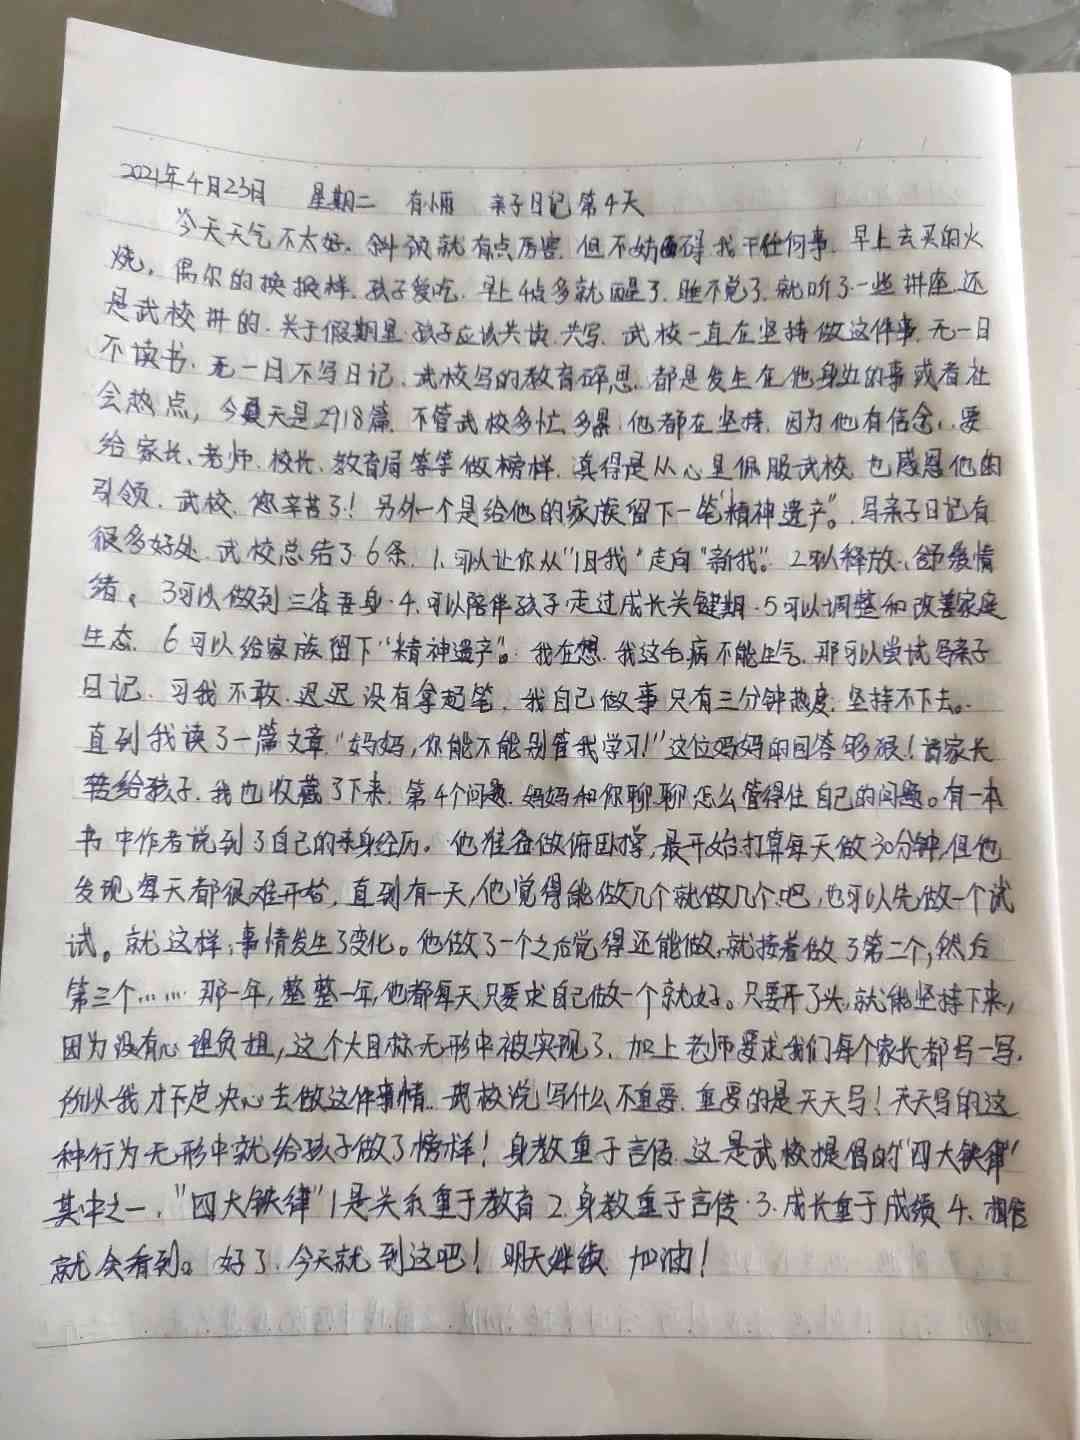 2021年4月23日 星期二 有小雨 亲子日记第4天
今天天气不太好. 斜颈就有点厉害. 但不妨碍我干任何事. 早上去买的火
烧, 偶尔的换换样. 孩子爱吃. 早上4点多就醒了. 睡不觉了. 就听了一些讲座. 还
是武校讲的. 关于假期里 孩子应该共读. 共写. 武校一直在坚持做这件事. 无一日
不读书. 无一日不写日记. 武校写的教育碎思. 都是发生在他身边的事或者社
会热点, 今天是2918篇. 不管武校多忙. 多累. 他都在坚持. 因为他有信念, 要
给家长、老师. 校长、教育局等等做榜样. 真得是从心里佩服武校. 也感恩他的
引领. 武校. 您辛苦了! 另外一个是给他的家族留下一笔"精神遗产". 写亲子日记有
很多好处. 武校总结了6条. 1、可以让你从"旧我"走向"新我". 2.可以释放、舒缓情
绪。 3可以做到三省吾身·4、可以陪伴孩子走过成长关键期·5可以调整和改善家庭
生态. 6可以给家族留下"精神遗产". 我在想. 我这毛病不能生气. 那可以尝试写亲子
日记. 可我不敢. 迟迟没有拿起笔. 我自己做事只有三分钟热度. 坚持不下去。
直到我读了一篇文章. "妈妈, 你能不能别管我学习!" 这位妈妈的回答够狠! 请家长
转给孩子. 我也收藏了下来. 第4个问题. 妈妈和你聊聊怎么管得住自己的问题。有一本
书中作者说到了自己的亲身经历。他准备做俯卧撑, 最开始打算每天做30分钟, 但他
发现每天都很难开始, 直到有一天, 他觉得能做几个就做几个吧, 也可以先做一个试
试。就这样, 事情发生了变化。他做了一个之后觉得还能做, 就接着做了第二个, 然后
第三个…… 那一年, 整整一年, 他都每天只要求自己做一个就好。只要开了头, 就能坚持下来,
因为没有心理负担, 这个大目标无形中被实现了. 加上老师要求我们每个家长都写一写.
所以我才下定决心去做这件事情. 武校说写什么不重要. 重要的是天天写! 天天写的这
种行为无形中就给孩子做了榜样! 身教重于言传. 这是武校提倡的"四大铁律"
其中之一. "四大铁律"1是关系重于教育 2.身教重于言传·3.成长重于成绩 4、相信
就会看到。好了. 今天就到这吧! 明天继续. 加油!